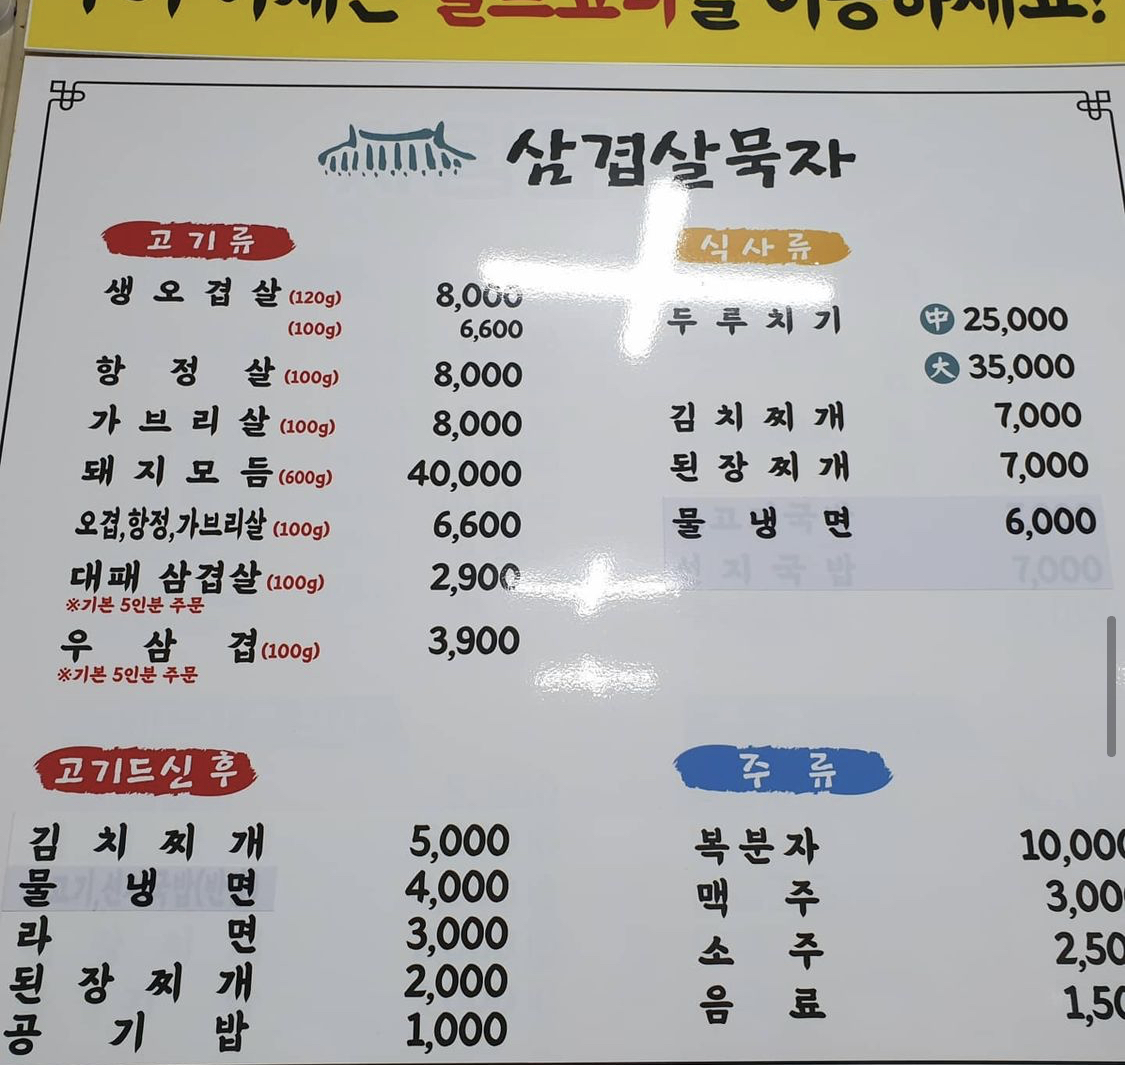 을 이용하세요!
삼겹살묵자
고기류
생오겹살 (120g) 8,000
(100g) 6,600
항정살 (100g) 8,000
가브리살 (100g) 8,000
돼지모듬 (600g) 40,000
오겹,항정,가브리살 (100g) 6,600
대패 삼겹살 (100g) 2,900
※기본 5인분 주문
우삼겹 (100g) 3,900
※기본 5인분 주문
식사류
두루치기 中 25,000
大 35,000
김치찌개 7,000
된장찌개 7,000
물냉면 6,000
선지국밥 7,000
고기드신 후
김치찌개 5,000
물냉면 4,000
라면 3,000
된장찌개 2,000
공기밥 1,000
주류
복분자 10,000
맥주 3,00
소주 2,50
음료 1,50